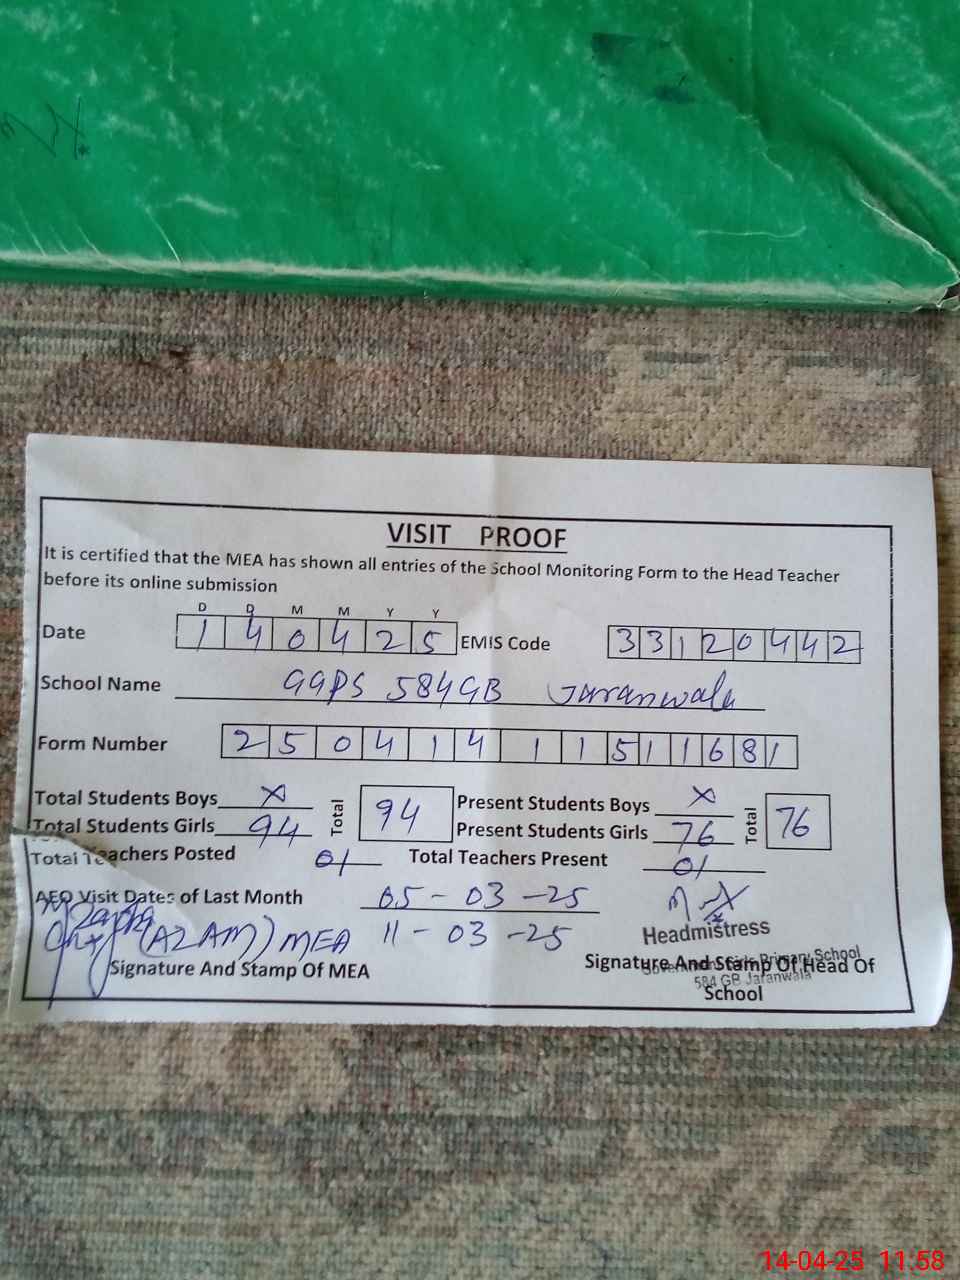 VISIT PROOF
It is certified that the MEA has shown all entries of the School Monitoring Form to the Head Teacher
before its online submission
D D M M Y Y
Date 1 4 0 4 2 5 EMIS Code 3 3 1 2 0 4 4 2
School Name GGPS 584GB Jaranwala
Form Number 2 5 0 4 1 4 1 1 5 1 1 6 8 1
Total Students Boys X Total 94 Present Students Boys X Total 76
Total Students Girls 94 Present Students Girls 76
Total Teachers Posted 01 Total Teachers Present 01
AEO Visit Dates of Last Month 05-03-25
(AZAM) MEA 11-03-25
Headmistress
Signature And Stamp Of MEA Signature And Stamp Of Head Of
School
Government Girls Primary School
584 GB Jaranwala
14-04-25 11:58